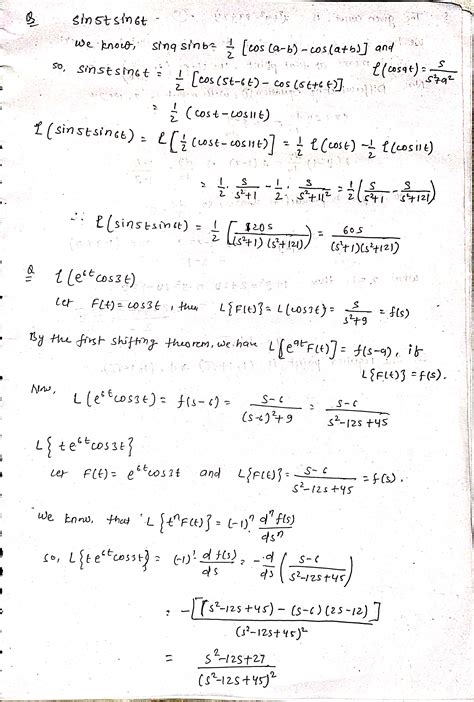 Q sin5t sin6t -
We know, sina sinb = 1/2 [cos(a-b) - cos(a+b)] and
so, sin5t sin6t = 1/2 [cos(5t-6t) - cos(5t+6t)] L(cosat) = s/(s²+a²)
= 1/2 (cost - cos11t)
L(sin5t sin6t) = L[1/2 (cost - cos11t)] = 1/2 L(cost) - 1/2 L(cos11t)
= 1/2 · s/(s²+1) - 1/2 · s/(s²+11²) = 1/2 (s/(s²+1) - s/(s²+121))
∴ L(sin5t sin6t) = 1/2 [120s/((s²+1)(s²+121))] = 60s/((s²+1)(s²+121))
Q L(e^{6t} cos3t)
Let F(t) = cos3t, then L{F(t)} = L(cos3t) = s/(s²+9) = f(s)
By the first shifting theorem, we have L[e^{at} F(t)] = f(s-a), if
L{F(t)} = f(s).
Now, L(e^{6t} cos3t) = f(s-6) = (s-6)/((s-6)²+9) = (s-6)/(s²-12s+45)
L{te^{6t} cos3t}
Let F(t) = e^{6t} cos3t and L{F(t)} = (s-6)/(s²-12s+45) = f(s).
We know, that L{t^n F(t)} = (-1)^n d^n f(s)/ds^n
so, L{te^{6t} cos3t} = (-1)^1 d f(s)/ds = -d/ds ((s-6)/(s²-12s+45))
= -[(s²-12s+45) - (s-6)(2s-12)]/(s²-12s+45)²
= (s²-12s+27)/(s²-12s+45)²